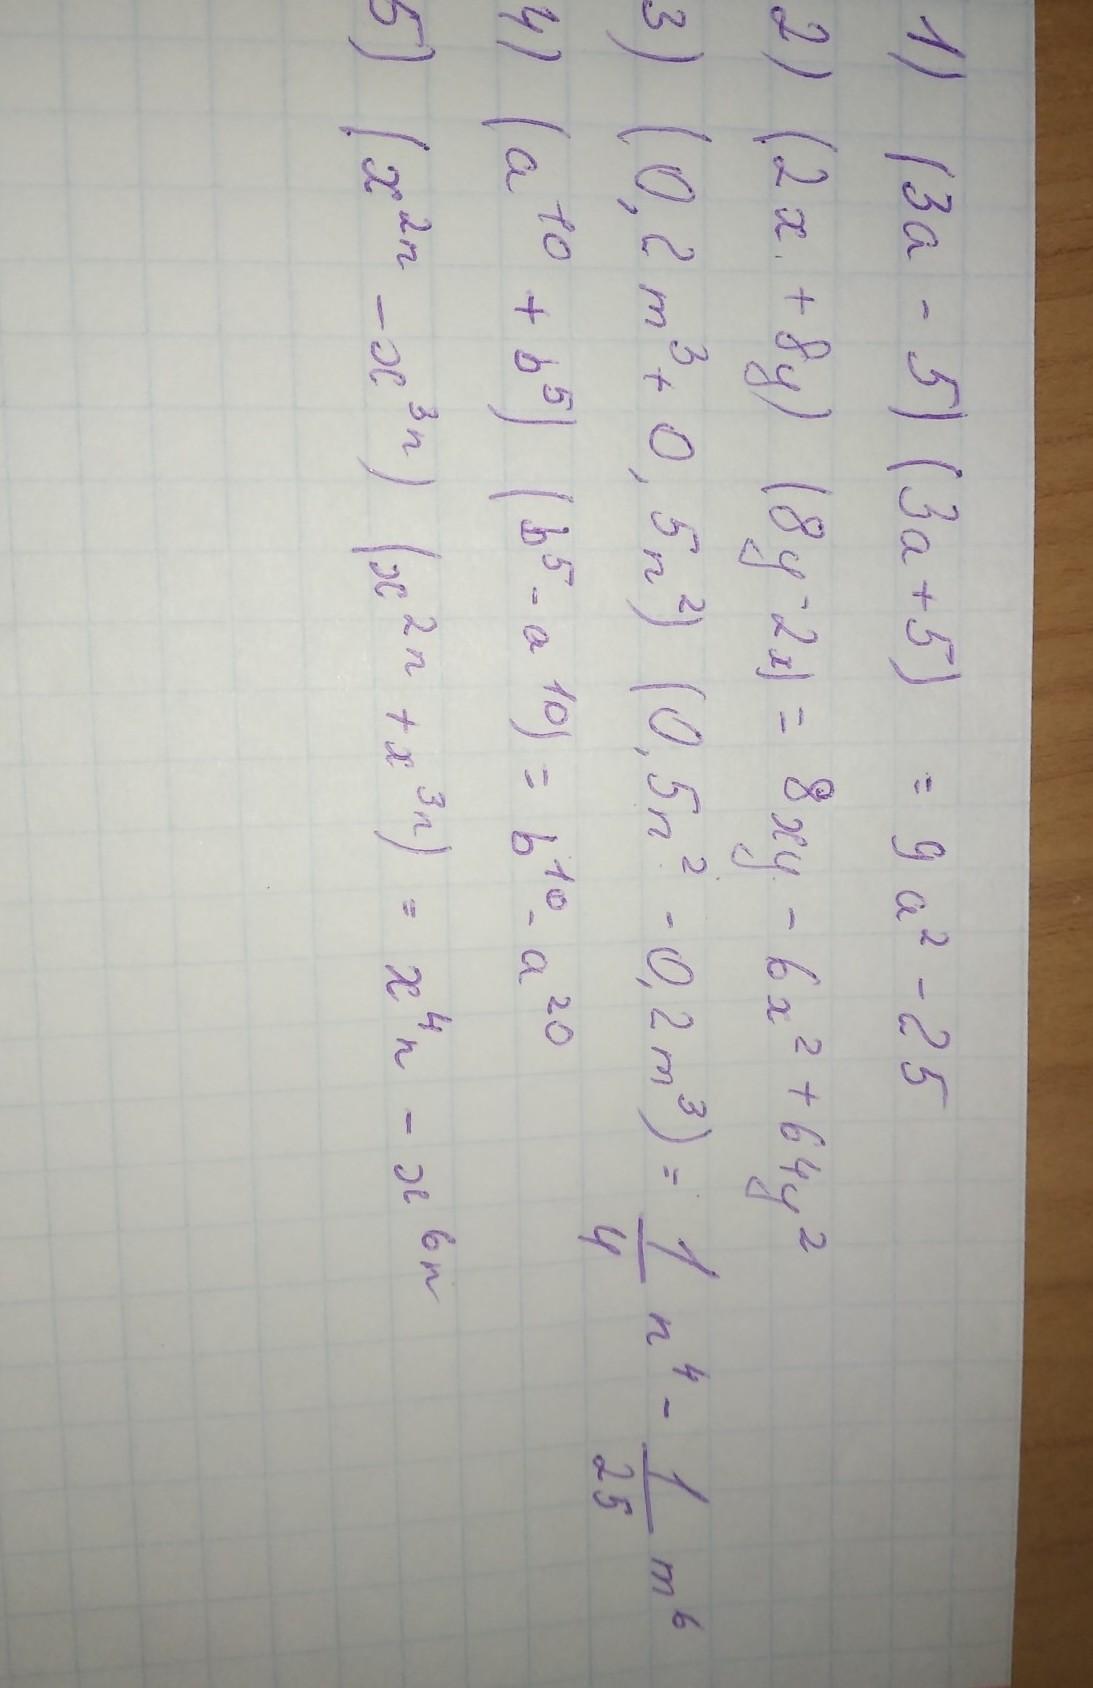 1) (3a - 5) (3a + 5) = 9a² - 25
2) (2x + 8y) (8y - 2x) = 8xy - 6x² + 64y²
3) (0,2m³ + 0,5n²) (0,5n² - 0,2m³) = 1/4 n⁴ - 1/25 m⁶
4) (a¹⁰ + b⁵) (b⁵ - a¹⁰) = b¹⁰ - a²⁰
5) (x²ⁿ - x³ⁿ) (x²ⁿ + x³ⁿ) = x⁴ⁿ - x⁶ⁿ